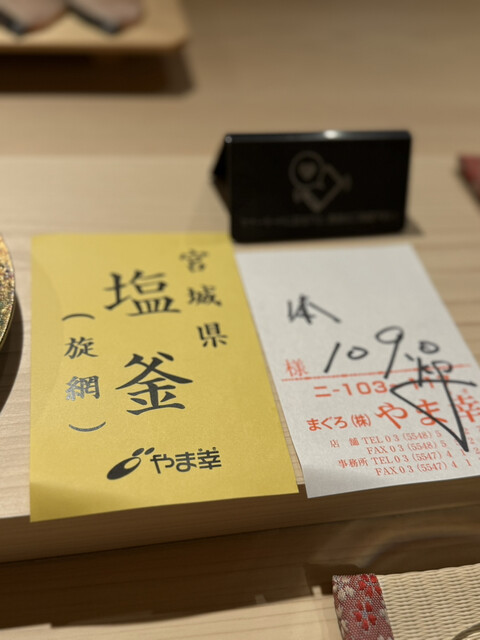 宮城県
塩釜
(旋網)
やま幸
様
109.0
ニ-103
まぐろ(株)やま幸
店舗 TEL 03 (5548) 5
FAX 03 (5548) 5
事務所 TEL 03 (5547) 4
FAX 03 (5547) 4